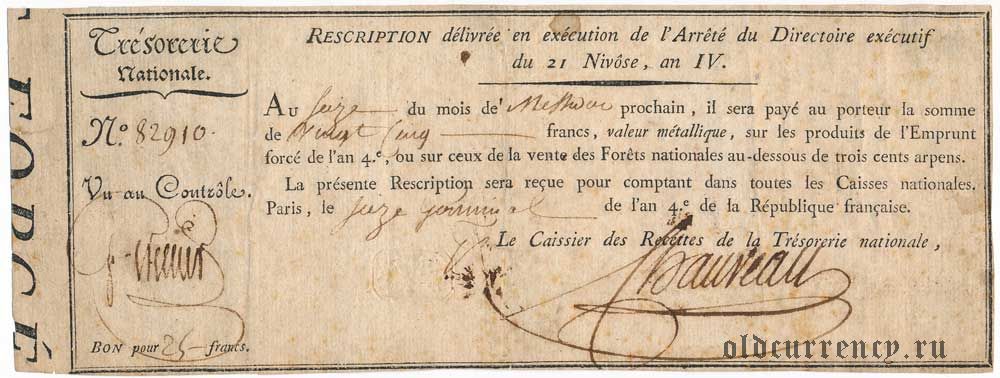 Trésorerie
Nationale.
N.º 82910.
Vu au Contrôle.
BON pour 25 francs.
RESCRIPTION délivrée en exécution de l'Arrêté du Directoire exécutif
du 21 Nivôse, an IV.
AU seize du mois de Messidor prochain, il sera payé au porteur la somme
de vingt cinq francs, valeur métallique, sur les produits de l'Emprunt
forcé de l'an 4.e, ou sur ceux de la vente des Forêts nationales au-dessous de trois cents arpens.
La présente Rescription sera reçue pour comptant dans toutes les Caisses nationales.
Paris, le seize germinal de l'an 4.e de la République française.
Le Caissier des Recettes de la Trésorerie nationale,
oldcurrency.ru